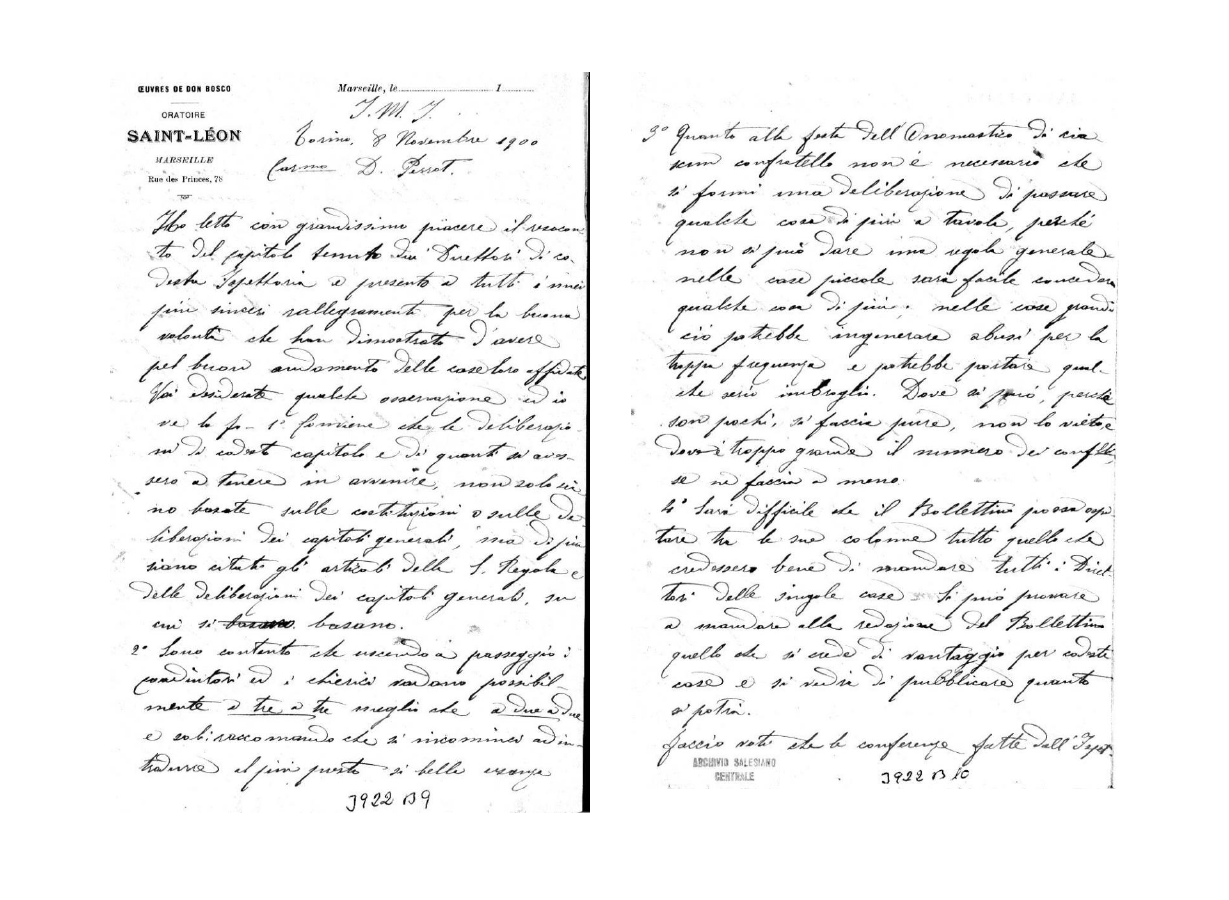 ŒUVRES DE DON BOSCO
ORATOIRE
SAINT-LÉON
MARSEILLE
Rue des Princes, 78
Marseille, le 1
J. M. J.
Torino, 8 Novembre 1900
Carmo D. Perrot.
Ho letto con grandissimo piacere il reso con
to del capitolo tenuto dai Direttori di co
desta Ispettoria e presento a tutti i miei
più sinceri rallegramenti per la buona
volontà che han dimostrato d'avere
pel buon andamento delle case loro affidate
Voi desiderate qualche osservazione ed io
ve la fo - 1° Conviene che le deliberazio
ni di codesto capitolo e di quanti si aves-
sero a tenere in avvenire, non solo sia
no basate sulle costituzioni o sulle de
liberazioni dei capitoli generali, ma di più
siano citati gli articoli della S. Regola e
delle deliberazioni dei capitoli generali, su
cui si basano.
2° Sono contento che uscendo a passeggio i
coadiutori ed i chierici vadano possibil-
mente a tre a tre meglio che a due a due
e soli: raccomando che si incominci ad in-
trodurre al più presto sì bella usanza
J922 B9
3° Quanto alla festa dell'Onomastico di cia
scun confratello non è necessario che
si formi una deliberazione di passare
qualche cosa di più a tavola, perché
non si può dare una regola generale
nelle case piccole sarà facile concedere
qualche cosa di più; nelle case grandi
ciò potrebbe ingenerare abusi per la
troppa frequenza e potrebbe portare qual
che serio imbroglio. Dove si può, perché
son pochi, si faccia pure, non lo vieto, e
dov'è troppo grande il numero dei conflli,
se ne faccia a meno.
4° Sarà difficile che il Bollettino possa ospi
tare tra le sue colonne tutto quello che
credessero bene di mandare tutti i Diret
tori delle singole case Si può provare
a mandare alla redazione del Bollettino
quello che si crede di vantaggio per codeste
case e si vedrà di pubblicare quanto
si potrà.
Faccio voti che le conferenze fatte dall'Ispet.
ARCHIVIO SALESIANO
CENTRALE
J922 B10